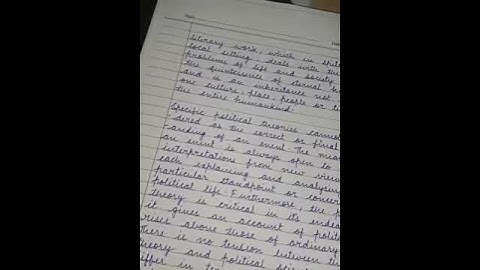 literary work, which in spite
local setting, deals with the
problems of life and society
the quintessence of eternal
and is an inheritance not
one culture, place, people or
the entire humankind.
Specific political theories cannot
dered as the correct or final
anding of an event. The mean
an event is always open to
interpretations from new view
each explaining and analysing
particular standpoint or concern
political life. Furthermore, the
theory is critical in its endea
it gives an account of polit
rises above those of ordinary
there is no tension between
theory and political
differ in